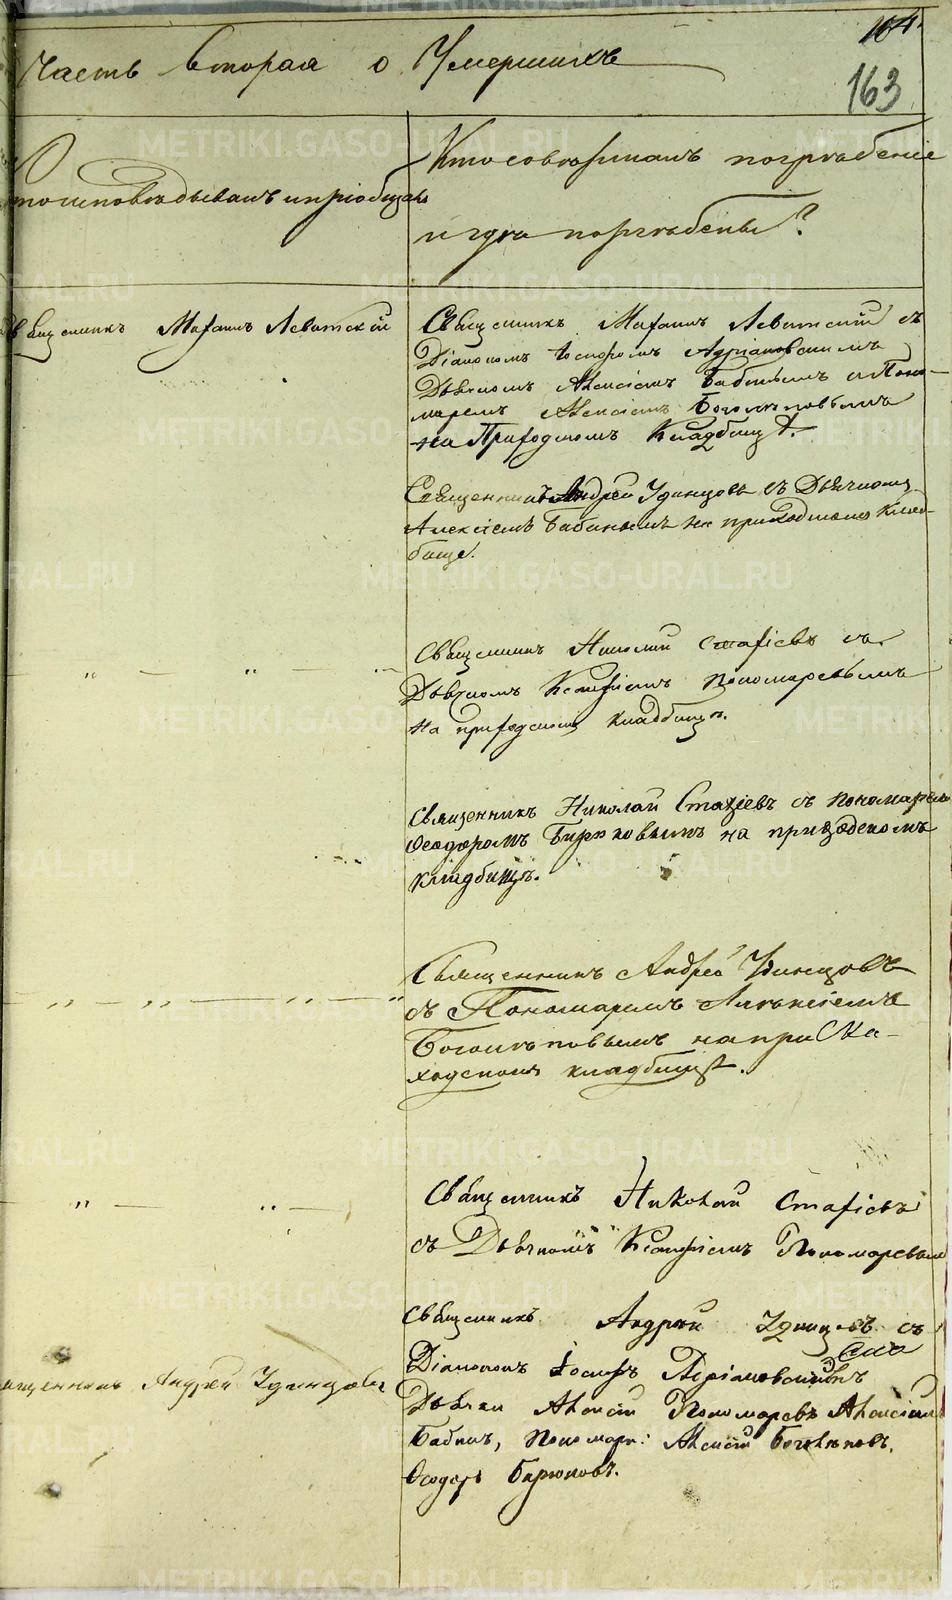 104.
Часть вторая о Умершихъ
163
Кто исповѣдывалъ и пріобщалъ
Кто совершалъ погрѣбеніе
и гдѣ погрѣбены?
Священникъ Михаилъ Левитскій
Священникъ Михаилъ Левитскій съ
Діакономъ Іосифомъ Адріановскимъ
Дьячкомъ Алексіемъ Бабинымъ и Поно-
маремъ Алексіемъ Боголѣповымъ
на Приходскомъ Кладбищѣ.
Священникъ Андрей Удинцовъ съ Дьячкомъ
Алексіемъ Бабинымъ на приходскомъ клад-
бище.
Священникъ Николай Стахіевъ съ
Дьячкомъ Пономаревымъ
на приходскомъ кладбищѣ.
Священникъ Николай Стахіевъ съ пономаремъ
Ѳеодоромъ Бирюковымъ на приходскомъ
кладбищѣ.
Священникъ Андрей Удинцовъ
съ Пономаремъ Алексіемъ
Боголѣповымъ на при
ходскомъ кладбищѣ.
Священникъ Николай Стахіевъ
съ Дьячкомъ Пономаревымъ
Священникъ Андрей Удинцовъ съ
Діакономъ Іосифъ Адріановскимъ
ященникъ Андрей Удинцовъ
Дьячки Алексій Пономаревъ Алексій
Бабинъ, Пономари: Алексѣй Боголѣповъ,
Ѳеодоръ Бирюковъ.
METRIKI.GASO-URAL.RU